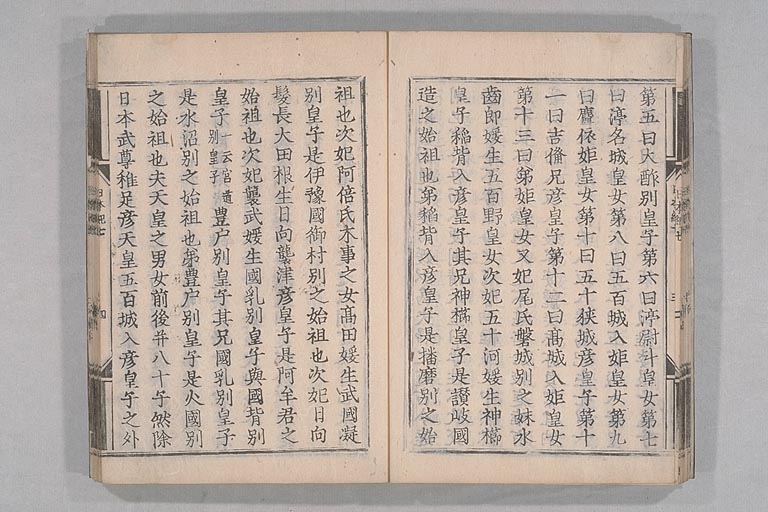 第五曰大酢別皇子第六曰渟熨斗皇女第七
曰渟名城皇女第八曰五百城入姫皇女第九
曰麛依姫皇女第十曰五十狹城彦皇子第十
一曰吉備兄彦皇子第十二曰髙城入姫皇女
第十三曰弟姫皇女又妃尾氏磐城別之妹水
齒郎媛生五百野皇女次妃五十河媛生神櫛
皇子稲背入彦皇子其兄神櫛皇子是讃岐國
造之始祖也弟稲背入彦皇子是播磨別之始
祖也次妃阿倍氏木事之女髙田媛生武國凝
別皇子是伊豫國御村別之始祖也次妃日向
髮長大田根生日向襲津彦皇子是阿牟君之
始祖也次妃襲武媛生國乳別皇子與國背別
皇子一云宮道別皇子豊戸別皇子其兄國乳別皇子
是水沼別之始祖也弟豊戸別皇子是火國別
之始祖也夫天皇之男女前後并八十子然除
日本武尊稚足彦天皇五百城入彦皇子之外